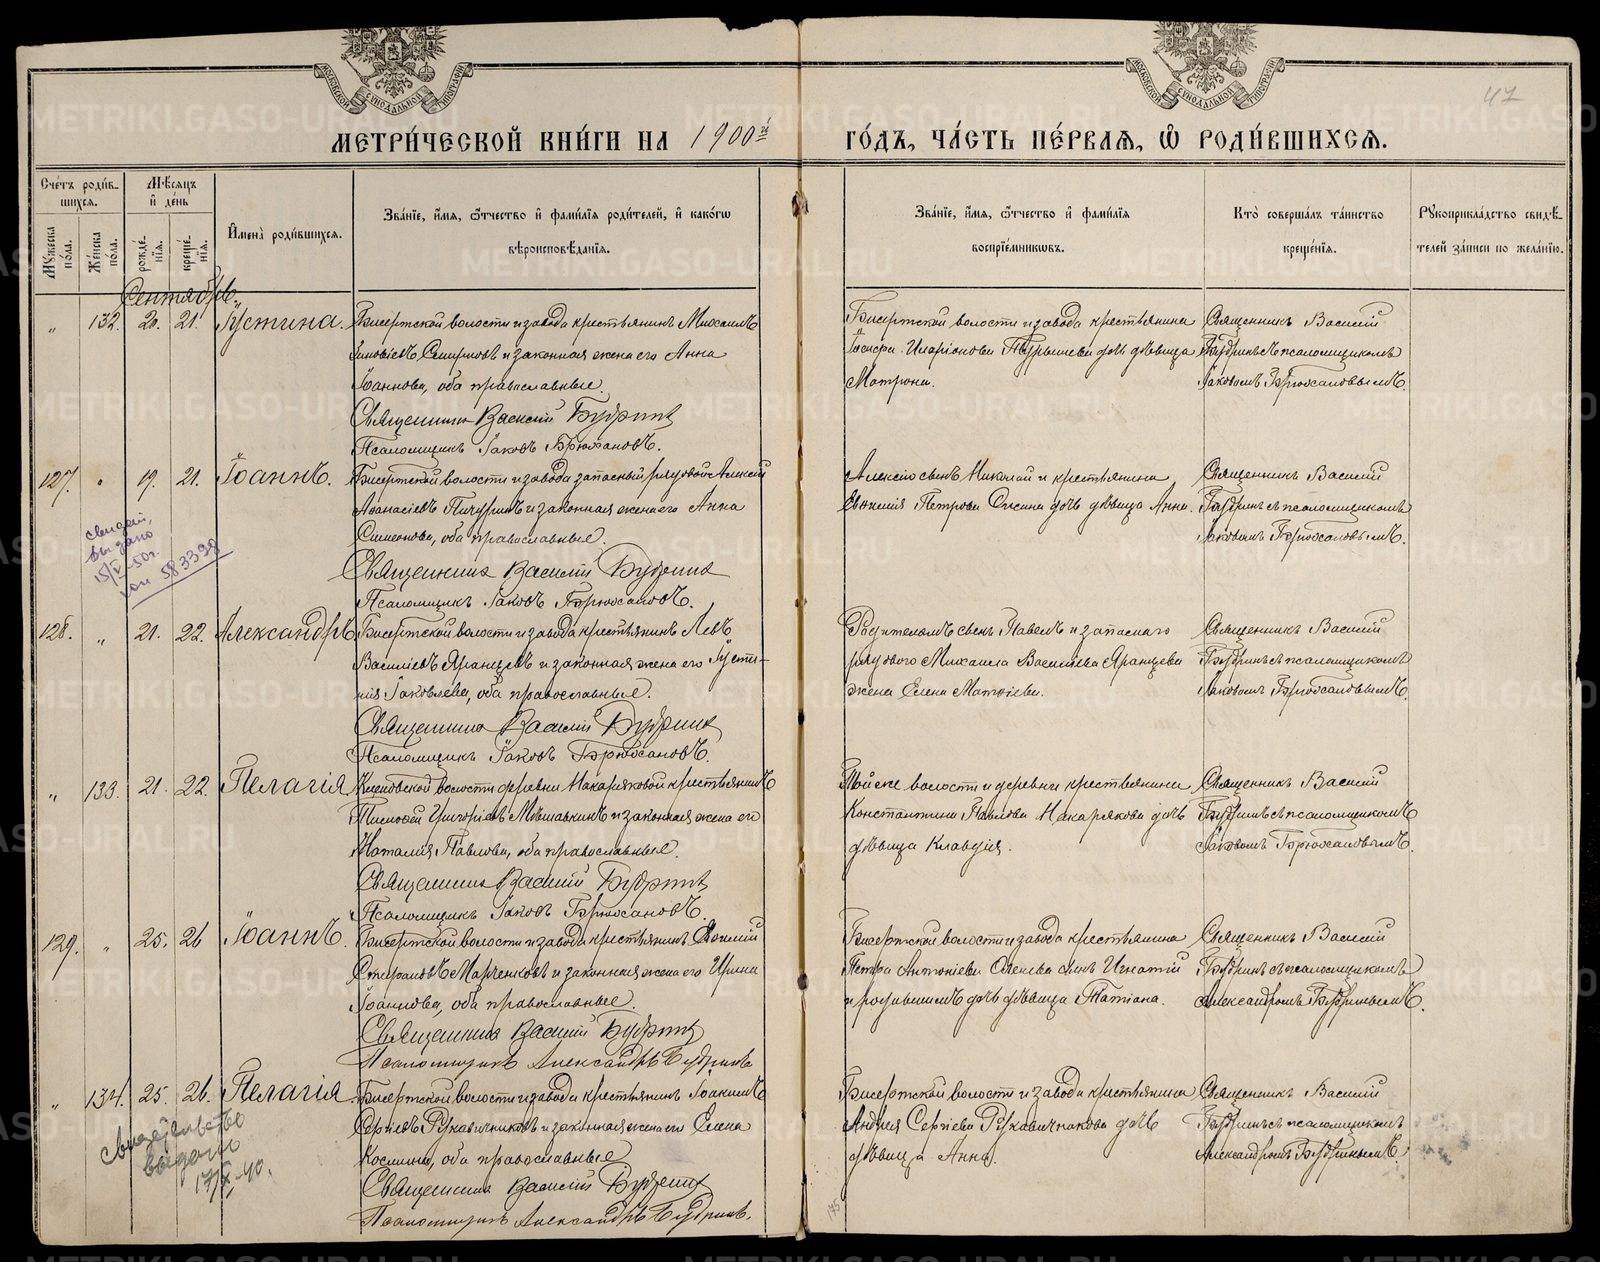 МЕТРИ́ЧЕСКОЙ КНИ́ГИ НА 1900й ГО́ДЪ, ЧА́СТЬ ПЕ́РВАѦ, Ѡ҆ РОДИ́ВШИХСѦ.
47
Сче́тъ роди́в-
шихся.
Мѣсяцъ
и҆ де́нь
Мꙋ́жеска по́ла.
Же́нска по́ла.
рожде́нїѧ.
креще́нїѧ.
И҆мена̀ роди́вшихсѧ.
Зва́нїе, и҆́мѧ, ѻ҆́тчество и҆ фами́лїѧ роди́телей, и҆ како́гѡ
вѣроисповѣ́данїѧ.
Зва́нїе, и҆́мѧ, ѻ҆́тчество и҆ фами́лїѧ
воспрїе́мникѡвъ.
Кто̀ соверша́лъ та́инство
креще́нїѧ.
Рꙋкоприкла́дство свидѣ́-
телей за́писи по жела́нїю.
Сентябрь.
„ 132. 20. 21. Іустина.
Бисертской волости и завода крестьянинъ Михаилъ
Зиновіевъ Смирновъ и законная жена его Анна
Іоаннова, оба православные.
Священникъ Василій Будринъ
Псаломщикъ Іаковъ Брюхановъ.
Бисертской волости и завода крестьянина
Іосифа Иларіонова дочь дѣвица
Матрона.
Священникъ Василій
Будринъ съ псаломщикомъ
Іаковомъ Брюхановымъ.
127. „ 19. 21. Іоаннъ.
Бисертской волости и завода запасный рядовой Алексій
Аѳанасіевъ Пичугинъ и законная жена его Анна
Симеонова, оба православные.
Священникъ Василій Будринъ
Псаломщикъ Іаковъ Брюхановъ.
Алексія сынъ Николай и крестьянина
Евѳимія Петрова дочь дѣвица Анна.
Священникъ Василій
Будринъ съ псаломщикомъ
Іаковомъ Брюхановымъ.
свидет.
выдано
15/V-50г.
583398
128. „ 21. 22. Александръ
Бисертской волости и завода крестьянинъ Левъ
Василіевъ Яранцевъ и законная жена его Іусти-
нія Іаковлева, оба православные.
Священникъ Василій Будринъ
Псаломщикъ Іаковъ Брюхановъ.
Родителевъ сынъ Павелъ и запаснаго
рядового Михаила Василіева Яранцева
жена Елена Матѳіева.
Священникъ Василій
Будринъ съ псаломщикомъ
Іаковомъ Брюхановымъ.
„ 133. 21. 22. Пелагія
Кленовской волости деревни Макаряковой крестьянинъ
Тимоѳей Григоріевъ и законная жена его
Наталія Павлова, оба православные.
Священникъ Василій Будринъ
Псаломщикъ Іаковъ Брюхановъ.
Той же волости и деревни крестьянина
Константина Павлова Макарякова дочь
дѣвица Клавдія.
Священникъ Василій
Будринъ съ псаломщикомъ
Іаковомъ Брюхановымъ.
129. „ 25. 26 Іоаннъ.
Бисертской волости и завода крестьянинъ Василій
Стефановъ Марченковъ и законная жена его Ирина
Іоаннова, оба православные.
Священникъ Василій Будринъ
Псаломщикъ Александръ Будринъ
Бисертской волости и завода крестьянина
Петра Антоніева сынъ Игнатій
и родившимъ дочь дѣвица Татіана.
Священникъ Василій
Будринъ съ псаломщикомъ
Александромъ Будринымъ.
„ 134. 25. 26. Пелагія.
Бисертской волости и завода крестьянинъ Іоакимъ
Сергіевъ Рукавичниковъ и законная жена его Елена
Космина, оба православные
Священникъ Василій Будринъ
Псаломщикъ Александръ Будринъ.
Бисертской волости и завода крестьянина
Андрея Сергіева Рукавичникова дочь
дѣвица Анна.
Священникъ Василій
Будринъ съ псаломщикомъ
Александромъ Будринымъ
Свидетельство
выдано
17/X-40.
175